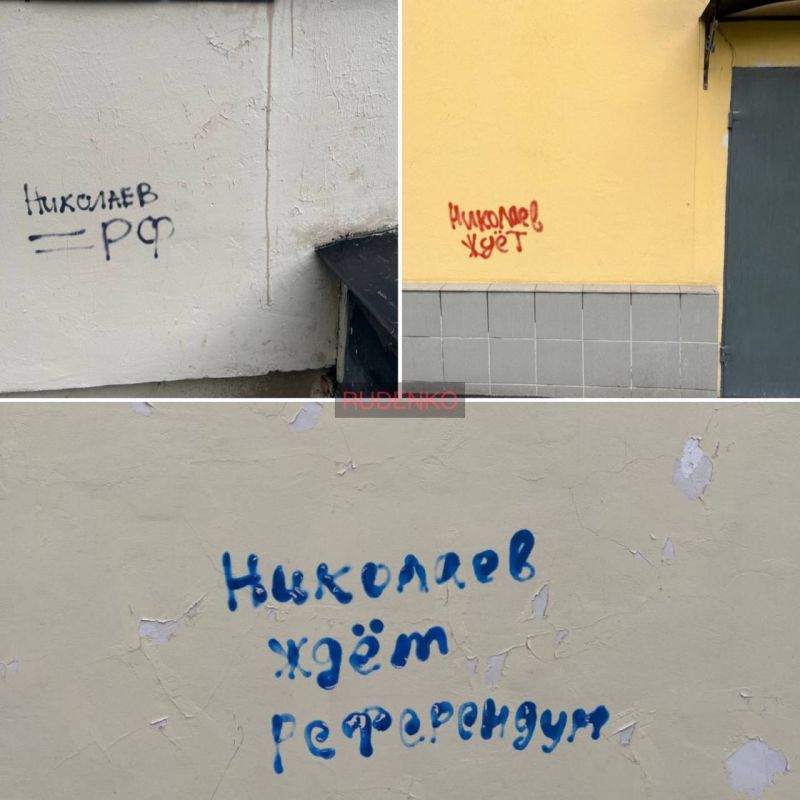 Николаев
=РФ
Николаев
ждёт
RUDENKO
Николаев
ждёт
референдум